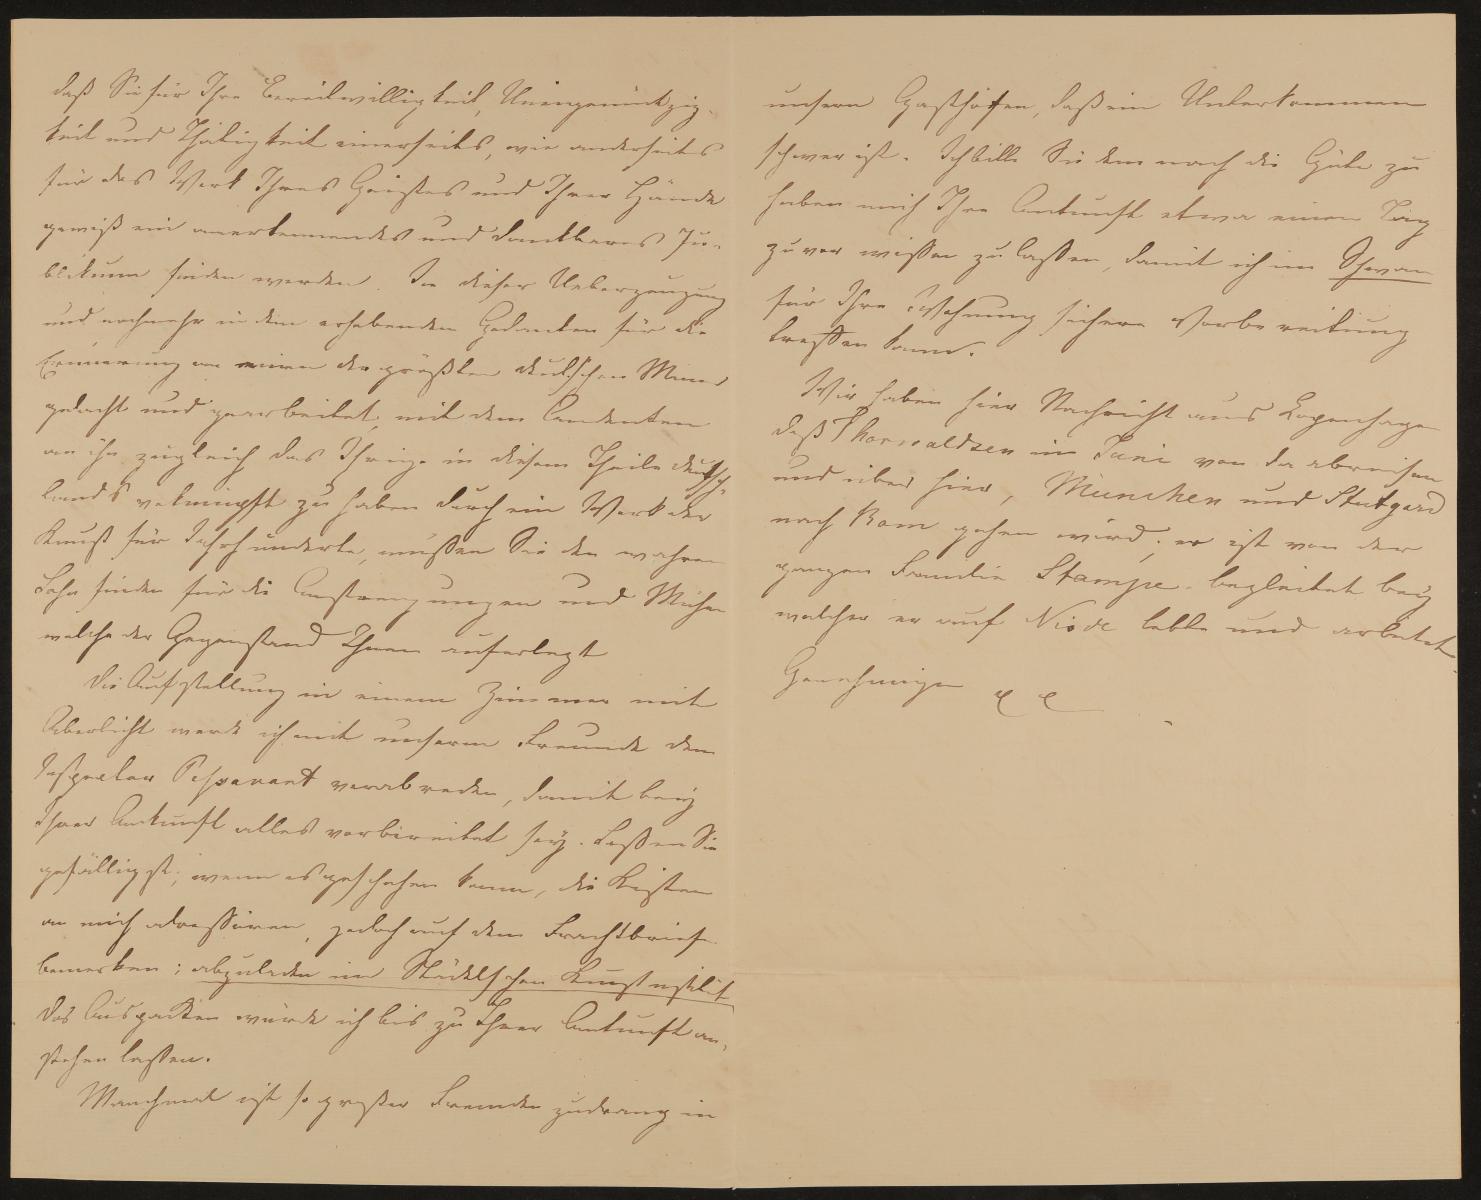 daß Sie für Ihre Bereitwilligkeit, Uneigennützig-
keit und Thätigkeit einerseits, wie anderseits
für das Werk Ihres Geistes und Ihrer Hände
gewiß ein anerkennendes und dankbares Pu-
blikum finden werden. In dieser Ueberzeugung
und nochmehr in dem erhebenden Gedanken für die
Erinnerung an einen der größten deutschen Männer
gedacht und gearbeitet, mit dem Andenken
an ihn zugleich das Ihrige in diesem Theile Deutsch-
lands verknüpft zu haben durch ein Werk der
Kunst für Jahrhunderte, müssen Sie den wahren
Lohn finden für die Anstrengungen und Mühen
welche der Gegenstand Ihnen auferlegt
Die Aufstellung in einem Zimmer mit
Oberlicht werde ich mit unserem Freunde dem
Inspector Passavant verabreden, damit bey
Ihrer Ankunft alles vorbereitet sey. Laßen Sie
gefälligst, wenn es geschehen kann, die Kisten
an mich adressiren, jedoch auf dem Frachtbriefe
bemerken: abzuladen im Städelschen Kunstinstitut
Das Auspacken würde ich bis zu Ihrer Ankunft an-
stehen laßen.
Manchmal ist so großer Fremden zudrang in
unsern Gasthöfen, daß ein Unterkommen
schwer ist. Ich bitte Sie demnach die Güte zu
haben mich Ihre Ankunft etwa einen Tag
zuvor wissen zu laßen, damit ich im Schwan
für Ihre Wohnung sichere Vorbereitung
treffen kann.
Wir haben hier Nachricht aus Kopenhagen
daß Thorwaldsen im Juni von da abreisen
und über hier, München und Stutgard
nach Rom gehen wird; er ist von der
ganzen Familie Stampe begleitet bey
welcher er auf Nisöe lebte und arbeitet.
Genehmigen